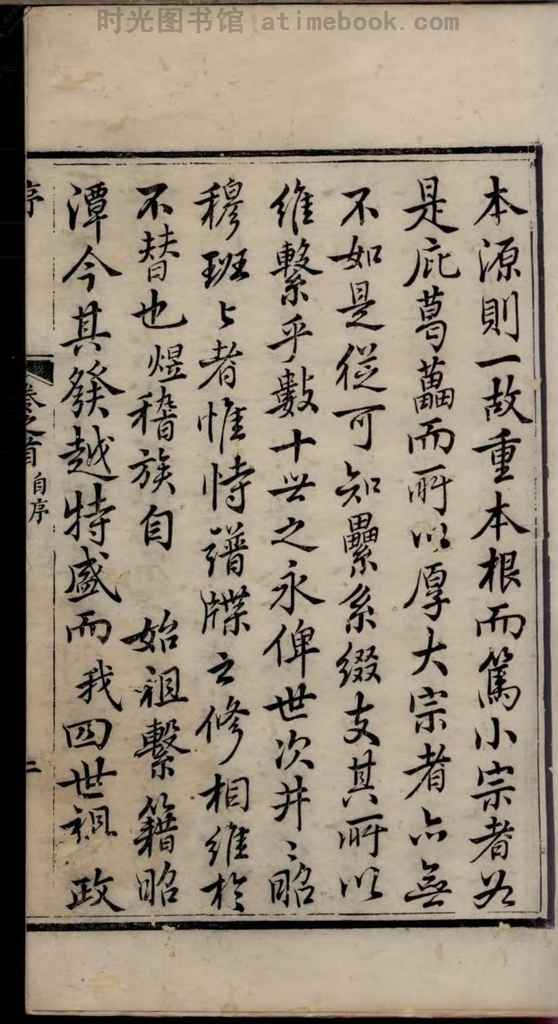 时光图书馆 atimebook.com
本源則一故重本根而篤小宗者若
是庇葛藟而所以厚大宗者亦無
不如是從可知纍系綴支其所以
維繫乎數十世之永俾世次井〻昭
穆班〻者惟恃譜牒之修相維於
不替也煜稽族自 始祖繫籍昭
潭今其發越特盛而我四世祖政
序
卷之首 自序
二